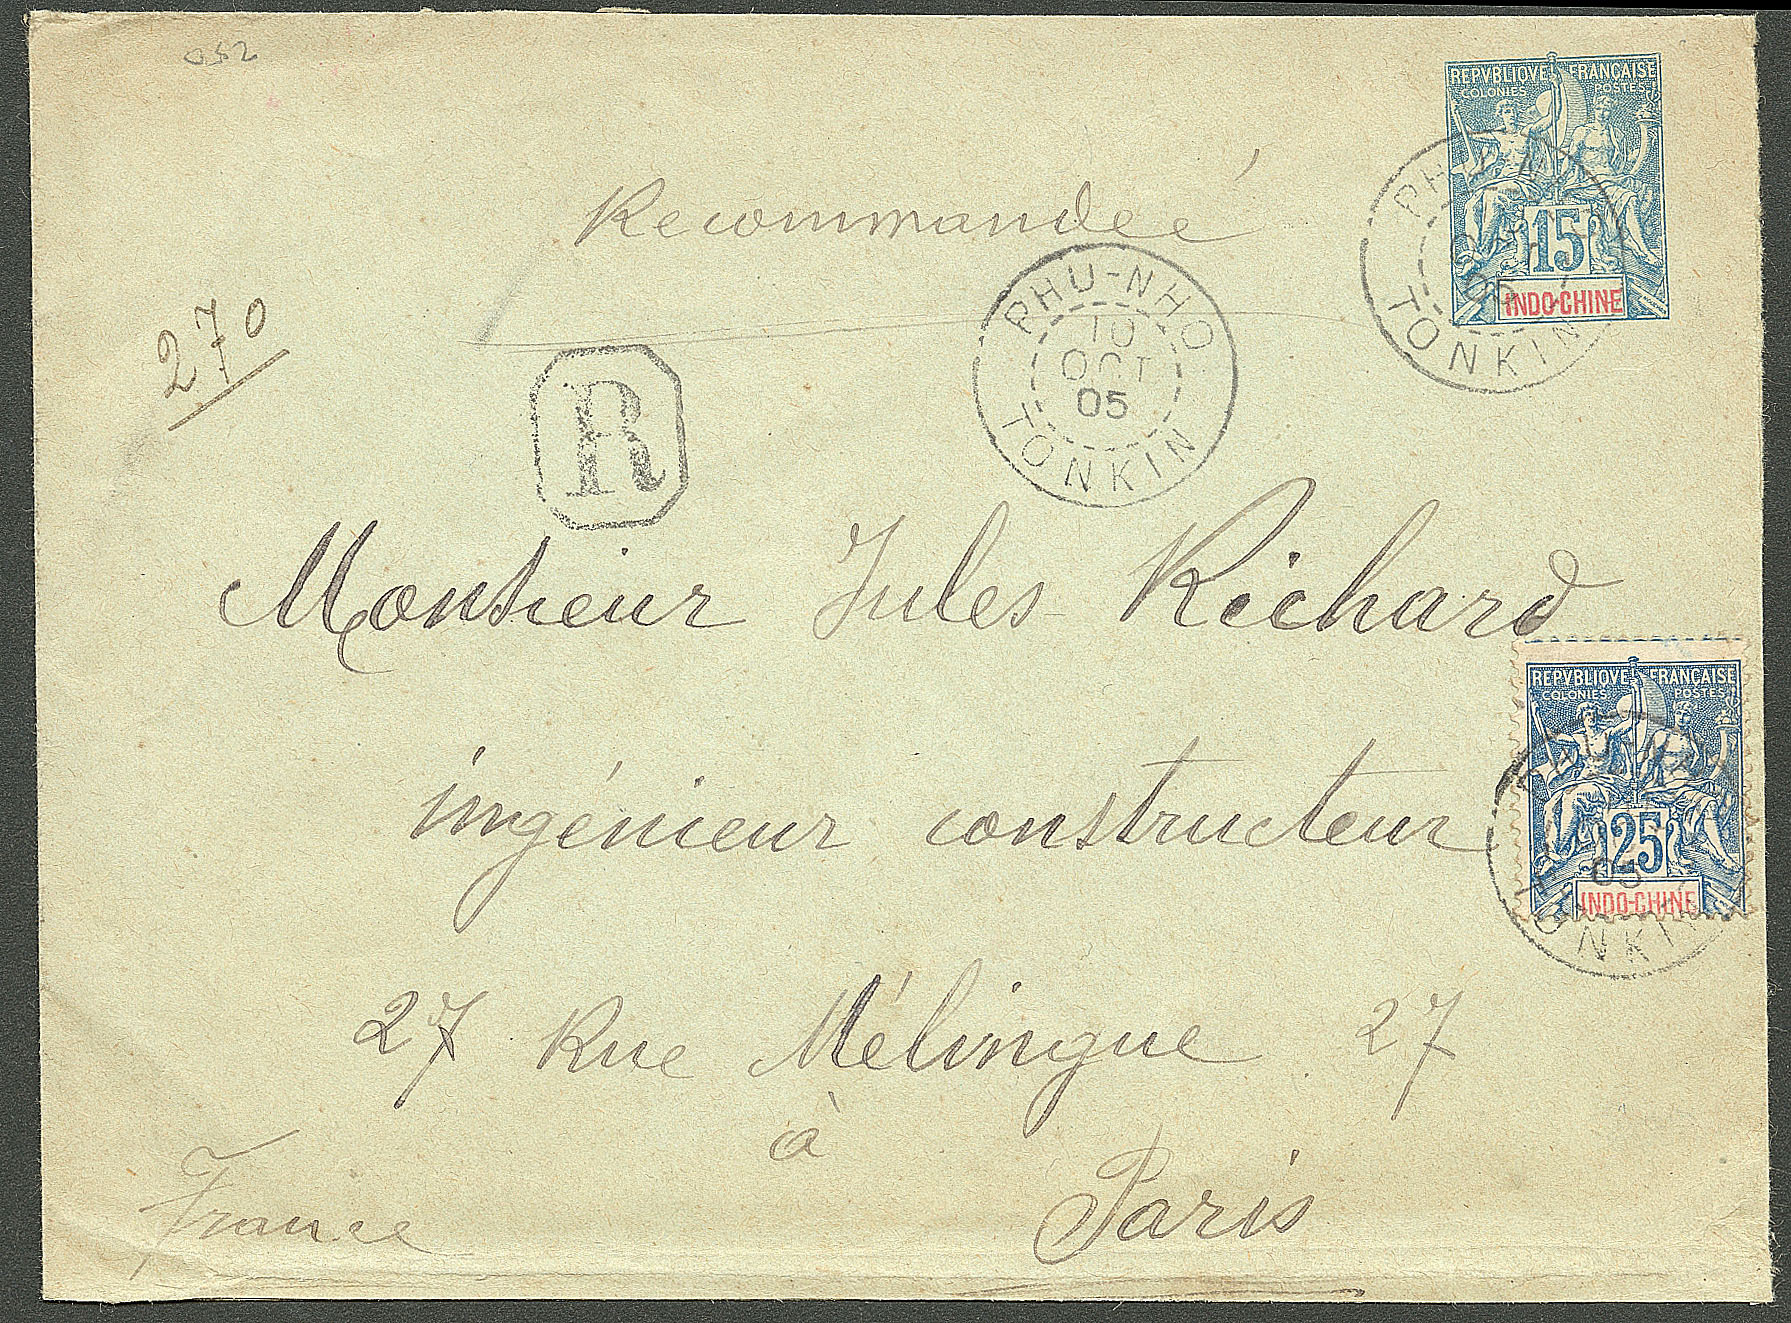 052
REPVBLIQVE FRANÇAISE
COLONIES POSTES
15
INDO-CHINE
TONKIN
Recommandée
270
PHU-NHO
10
OCT
05
TONKIN
R
Monsieur Jules Richard
ingénieur constructeur
REPVBLIQVE FRANÇAISE
COLONIES POSTES
25
INDO-CHINE
05
TONKIN
27 Rue Mélingue 27
à
Paris
France